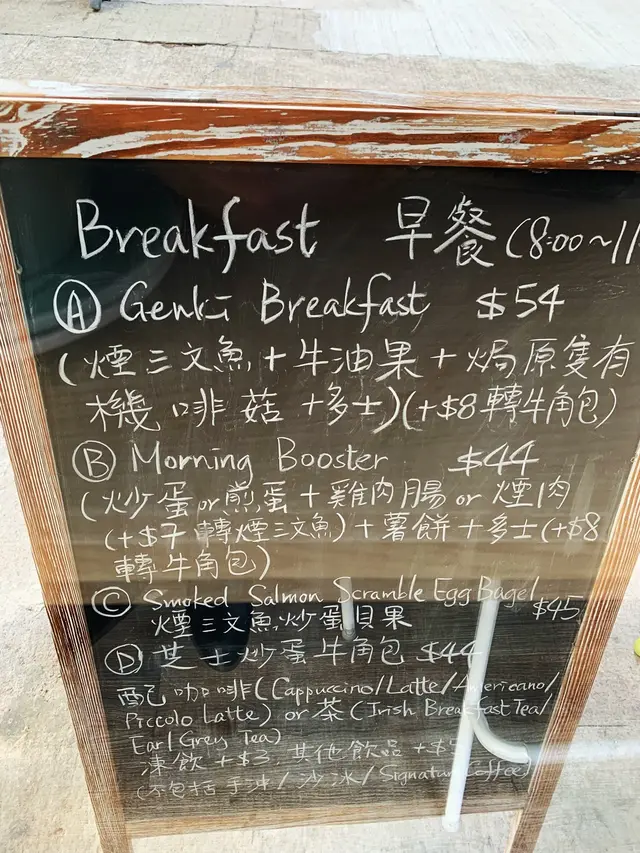 Breakfast 早餐 (8:00~11
Ⓐ Genki Breakfast $54
(煙三文魚+牛油果+焗原隻有
機啡菇+多士)(+$8轉牛角包)
Ⓑ Morning Booster $44
(炒蛋or煎蛋+雞肉腸or煙肉
(+$7轉煙三文魚)+薯餅+多士(+$8
轉牛角包)
Ⓒ Smoked Salmon Scramble Egg Bagel $45
煙三文魚炒蛋貝果
Ⓓ 芝士炒蛋牛角包 $44
配咖啡(Cappuccino/Latte/Americano/
Piccolo Latte) or 茶(Irish Breakfast Tea/
Earl Grey Tea)
凍飲+$3, 其他飲品+$
(不包括手沖/沙冰/Signature Coffee)